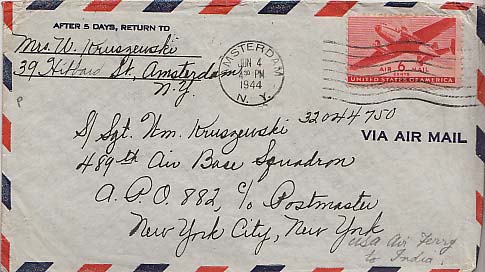 AFTER 5 DAYS, RETURN TO
Mrs. W. Kruszewski
39 Hibbard St., Amsterdam
N.Y.
AMSTERDAM
JUN 4
4:30 PM
1944
N. Y.
AIR 6 MAIL
CENTS
UNITED STATES OF AMERICA
VIA AIR MAIL
S/Sgt. Wm. Kruszewski 32044750
489th Air Base Squadron
A.P.O. 882, c/o Postmaster
New York City, New York
USA Air Ferry
to India